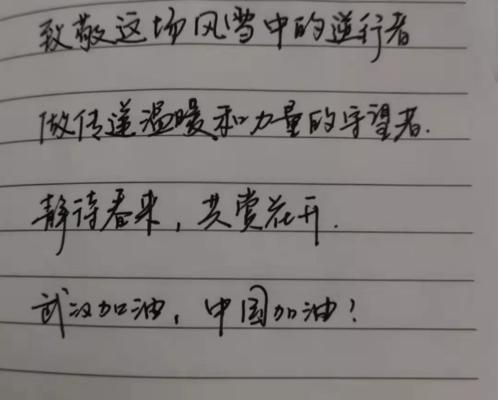 致敬这场风雪中的逆行者
做传递温暖和力量的守望者.
静待春来，共赏花开.
武汉加油，中国加油！